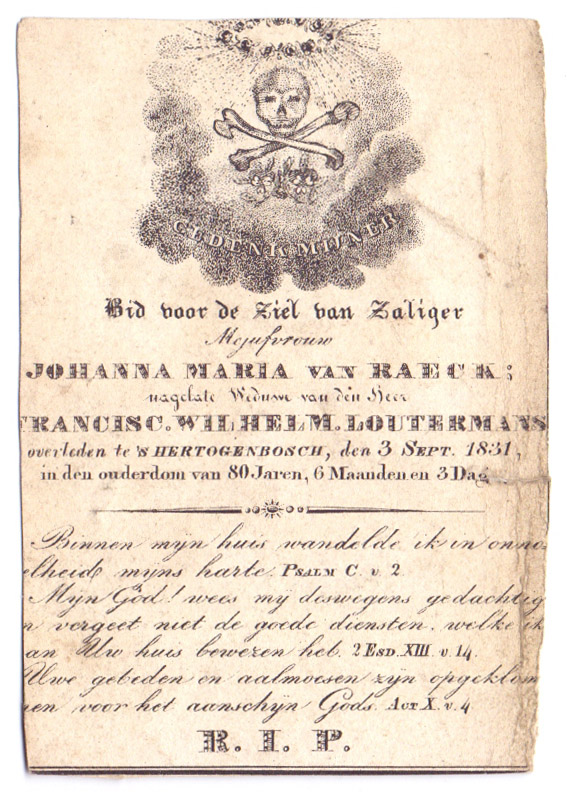 GEDENK MIJNER
Bid voor de Ziel van Zaliger
Mejufvrouw
JOHANNA MARIA VAN RAECK;
nagelate Weduwe van den Heer
FRANCISC. WILHELM. LOUTERMANS
overleden te 'S HERTOGENBOSCH, den 3 SEPT. 1831,
in den ouderdom van 80 Jaren, 6 Maanden en 3 Dag
Binnen mijn huis wandelde ik in onno
elheid mijns harte. PSALM C. v. 2.
Mijn God! wees mij deswegens gedachtig
n vergeet niet de goede diensten, welke ik
an Uw huis bewezen heb. 2 ESD. XIII. v. 14.
Uwe gebeden en aalmoesen zijn opgeklom
en voor het aanschijn Gods. ACT X. v. 4.
R. I. P.